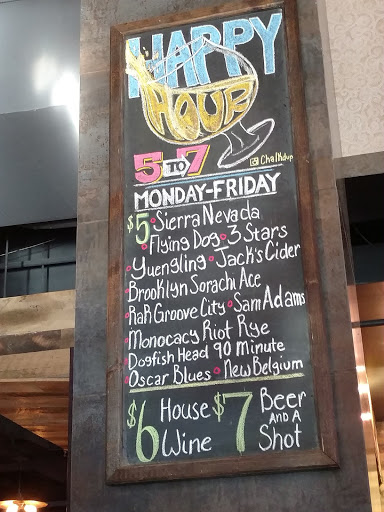 HAPPY
HOUR
5 TO 7
Chalkdup
MONDAY-FRIDAY
$5 Sierra Nevada
Flying Dog 3 Stars
Yuengling Jack's Cider
Brooklyn Sorachi Ace
RaR Groove City Sam Adams
Monocacy Riot Rye
Dogfish Head 90 Minute
Oscar Blues New Belgium
$6 House Wine
$7 Beer AND A Shot